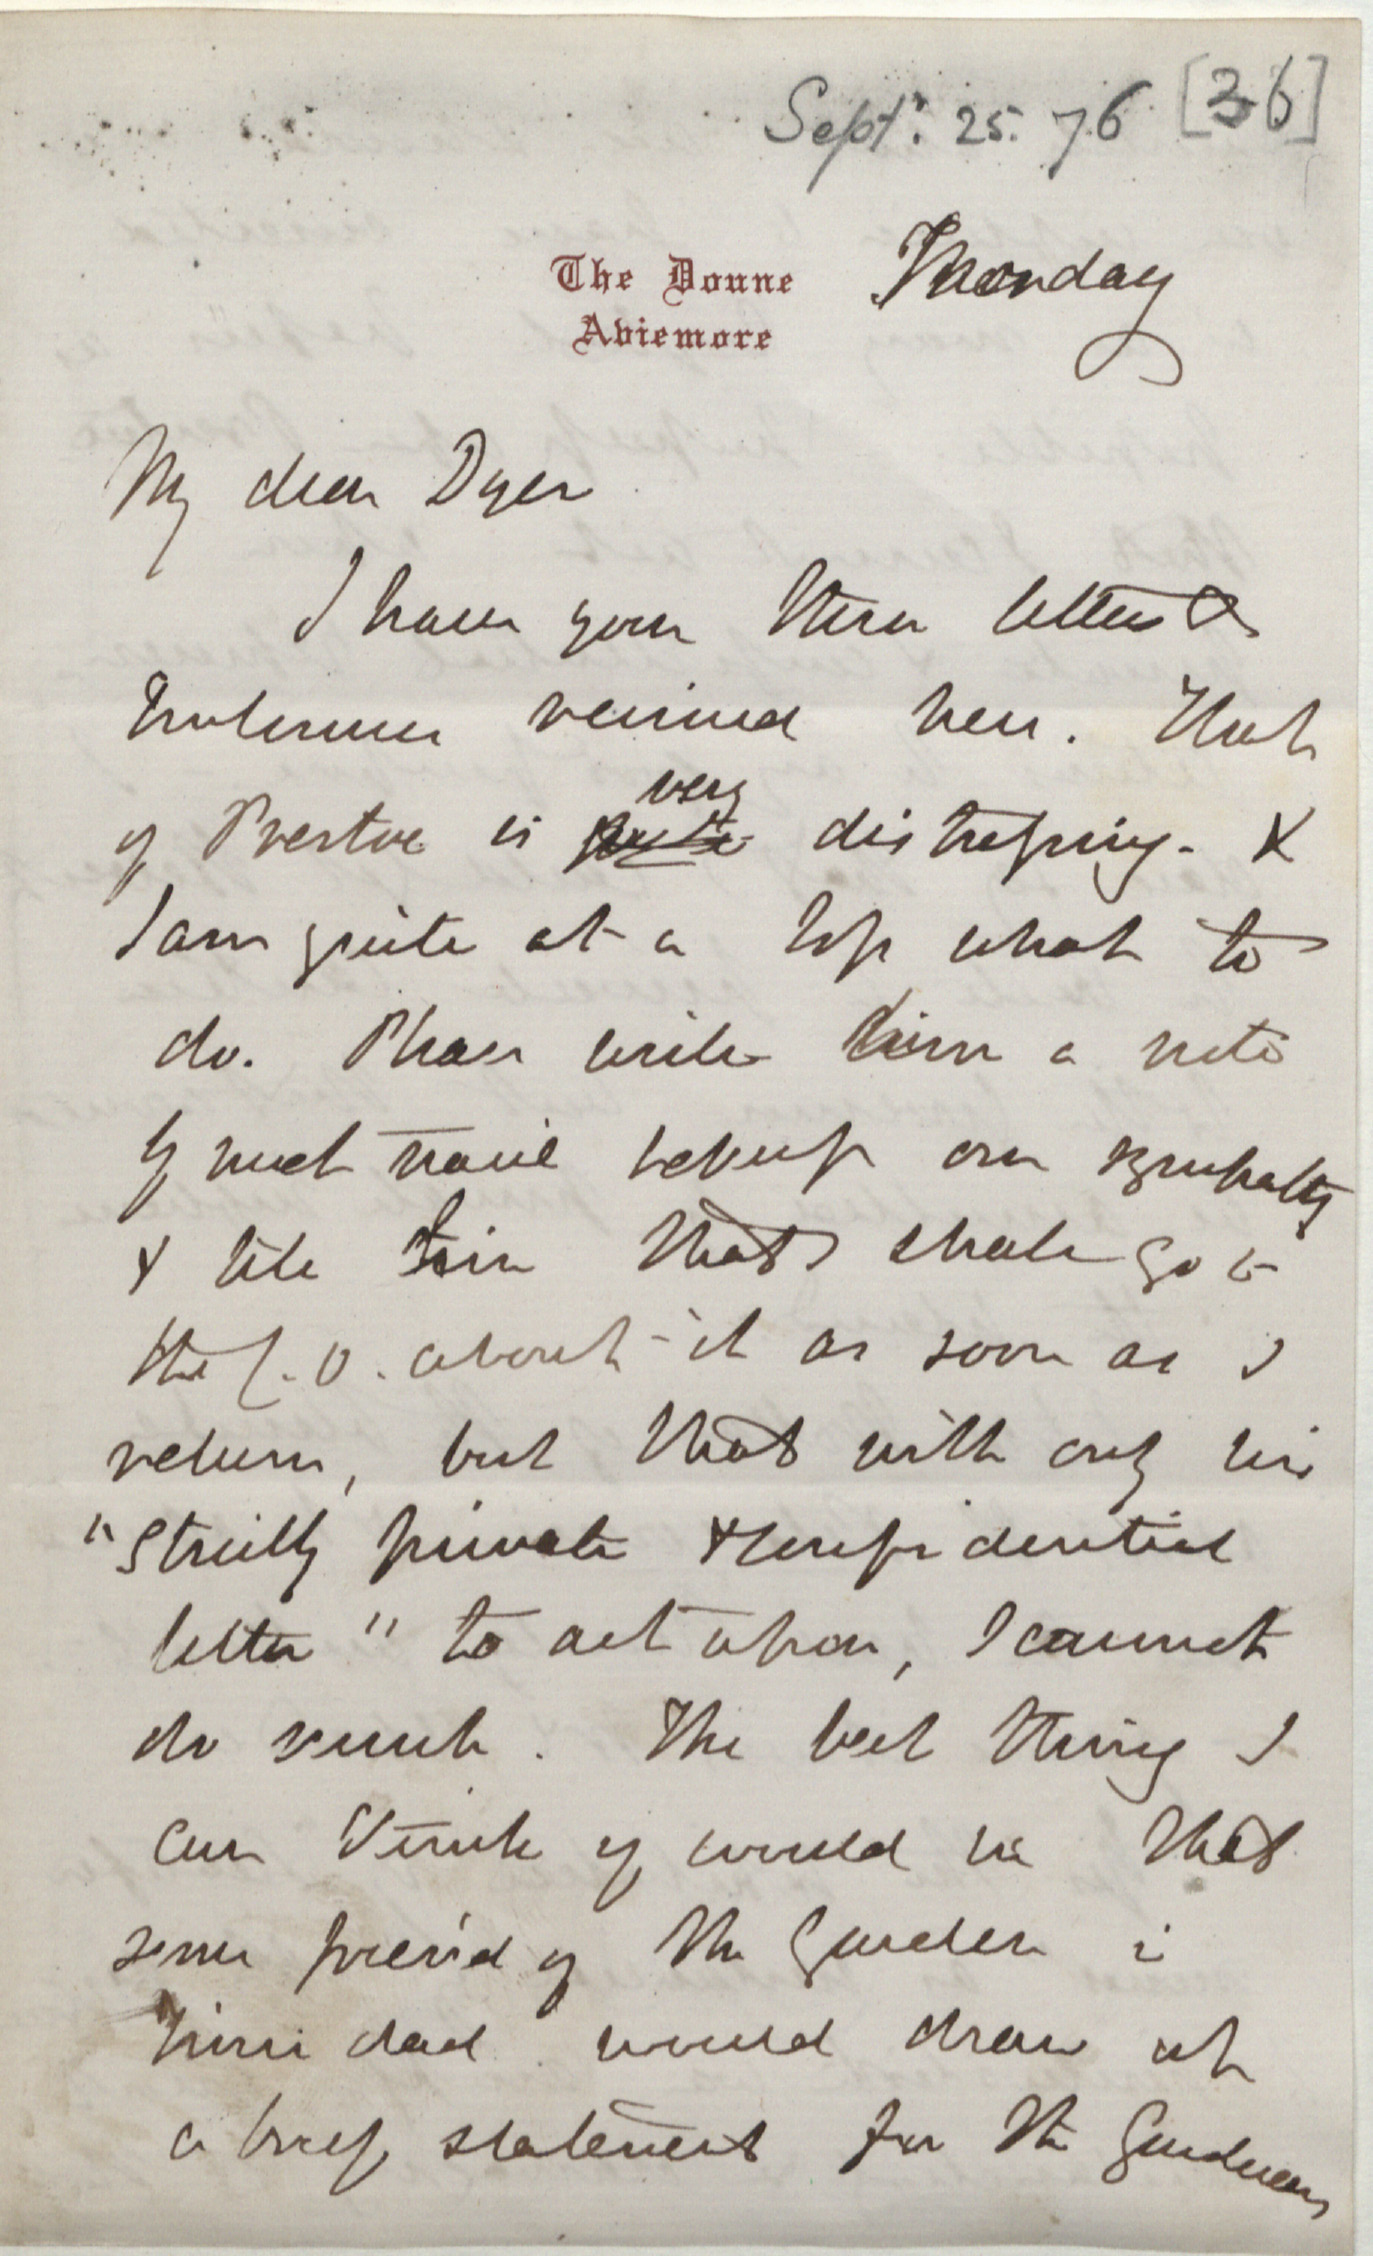 Septr. 25. 76 [36]
The Doune
Aviemore
Monday
My dear Dyer
I have your three letters &
enclosures received here. That
of Prestoe is very distressing. &
I am quite at a loss what to
do. Please write him a note
by next mail to express our sympathy
& tell him that I shall go to
the C.O. about it as soon as I
return, but that with only his
"Strictly private & confidential
letter" to act upon, I cannot
do much. The best thing I
can think of would be that
some friend of the Garden in
Trinidad would draw up
a brief statement for the Gardeners